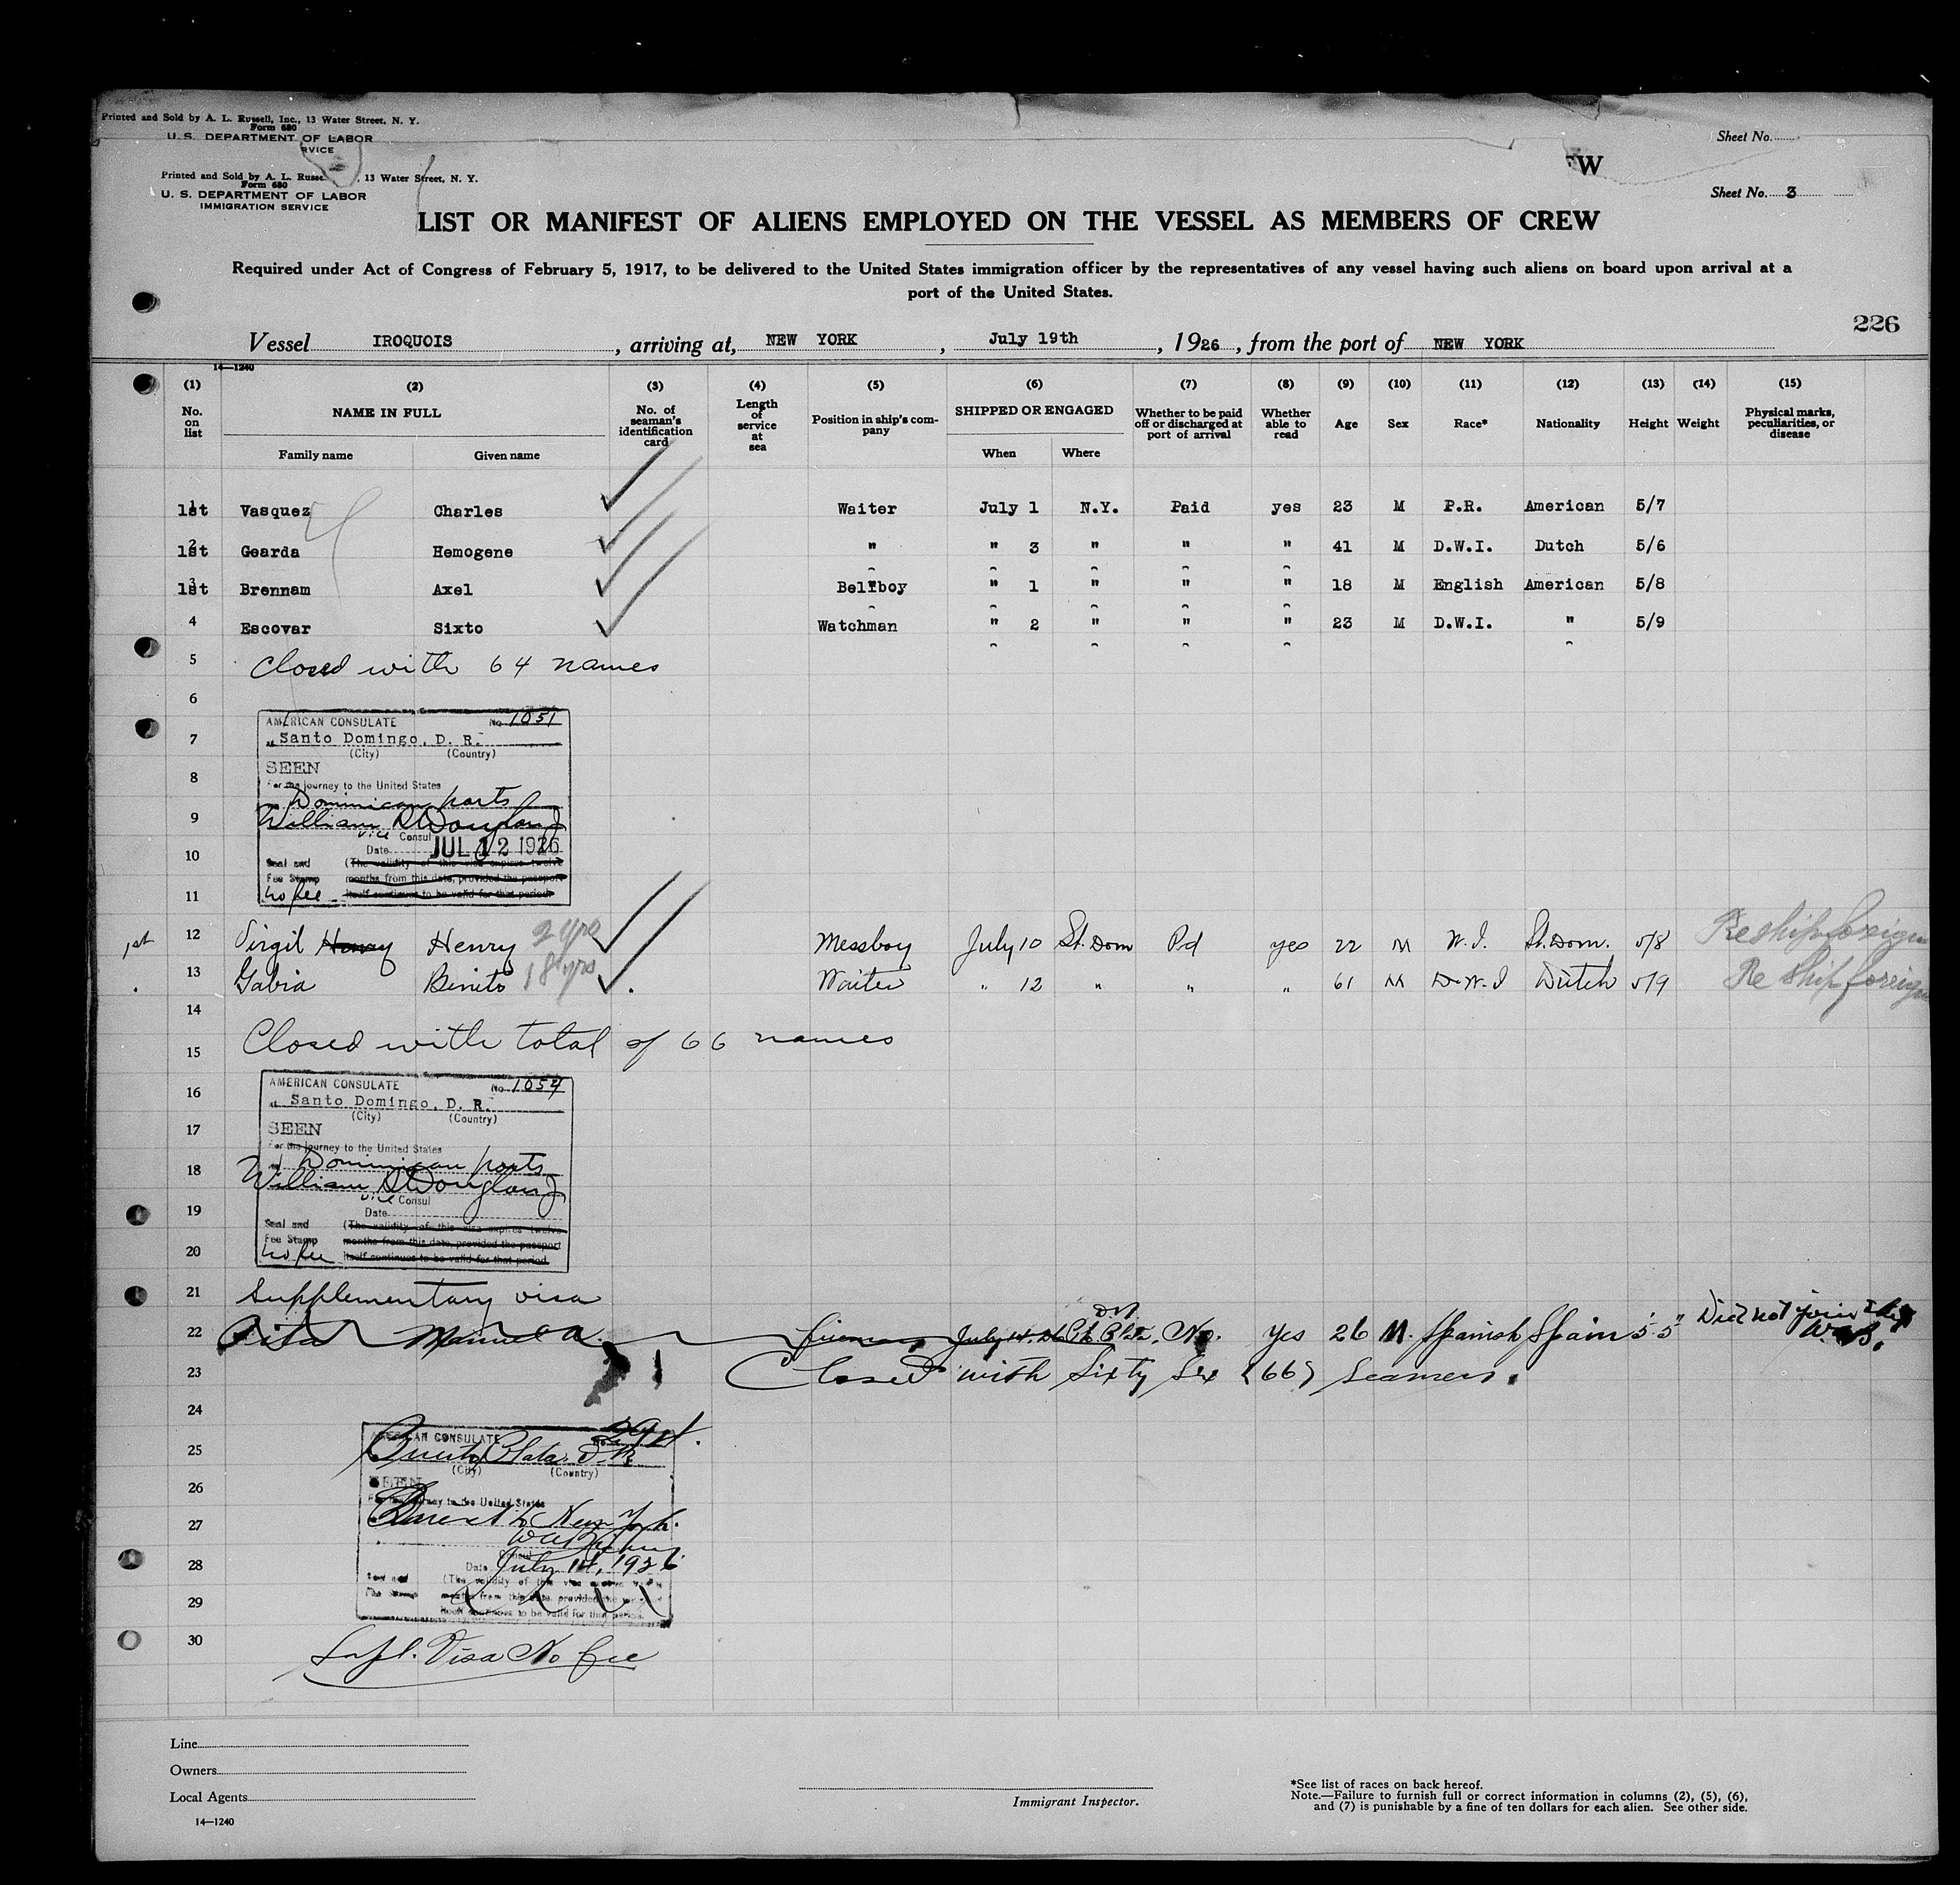 Printed and Sold by A. L. Russell, Inc., 13 Water Street, N. Y.
Form 680
U. S. DEPARTMENT OF LABOR
RVICE
Sheet No.
W
Printed and Sold by A. L. Russe , 13 Water Street, N. Y.
Form 680
U. S. DEPARTMENT OF LABOR
IMMIGRATION SERVICE
Sheet No. 3
LIST OR MANIFEST OF ALIENS EMPLOYED ON THE VESSEL AS MEMBERS OF CREW
Required under Act of Congress of February 5, 1917, to be delivered to the United States immigration officer by the representatives of any vessel having such aliens on board upon arrival at a
port of the United States.
226
Vessel IROQUOIS, arriving at, NEW YORK, July 19th, 1926, from the port of NEW YORK
14—1240
(1) (2) (3) (4) (5) (6) (7) (8) (9) (10) (11) (12) (13) (14) (15)
No. on list NAME IN FULL Family name Given name No. of seaman's identification card Length of service at sea Position in ship's company SHIPPED OR ENGAGED When Where Whether to be paid off or discharged at port of arrival Whether able to read Age Sex Race* Nationality Height Weight Physical marks, peculiarities, or disease
1 1st Vasquez Charles Waiter July 1 N.Y. Paid yes 23 M P.R. American 5/7
2 1st Gearda Hemogene " " 3 " " " 41 M D.W.I. Dutch 5/6
3 1st Brennam Axel Bellboy " 1 " " " 18 M English American 5/8
4 Escovar Sixto Watchman " 2 " " " 23 M D.W.I. " 5/9
5 Closed with 64 names
6
AMERICAN CONSULATE No. 1051
7 at Santo Domingo, D. R.
(City) (Country)
SEEN
8 For the journey to the United States
Dominican ports
9 William
vice Consul
10 Date JUL 12 1926
Seal and (The validity of this visa expires twelve
Fee Stamp months from this date, provided the passport
11 No fee itself continues to be valid for that period.
1st 12 Virgil Henry Henry 2 yrs Messboy July 10 St. Dom Pd yes 22 M W.I. St. Dom. 5/8 Reship foreign
13 Gabia Benito 18 yrs Waiter " 12 " " " 61 M D.W.I Dutch 5/9 Re ship foreign
14
15 Closed with total of 66 names
AMERICAN CONSULATE No. 1054
16 at Santo Domingo, D. R.
(City) (Country)
17 SEEN
For the journey to the United States
18 Dominican ports
William
vice Consul
19 Date
Seal and (The validity of this visa expires twelve
Fee Stamp months from this date, provided the passport
20 No fee itself continues to be valid for that period.
21 Supplementary visa
22 Manuel fireman July 14 Pt. Plata No. yes 26 M. Spanish Spain 5-5" Did not join ship
23 Closed with Sixty Six (66) Seamen.
24
AMERICAN CONSULATE
25 Puerto Plata D.R.
(City) (Country)
26 SEEN
For the journey to the United States
27 Direct to New York.
Consul
28 Date July 14, 1926
Seal and (The validity of this visa expires twelve
29 Fee Stamp months from this date, provided the
itself continues to be valid for that period.
30 Supl. Visa No fee
Line
Owners
Local Agents
14—1240
Immigrant Inspector.
*See list of races on back hereof.
Note.—Failure to furnish full or correct information in columns (2), (5), (6),
and (7) is punishable by a fine of ten dollars for each alien. See other side.